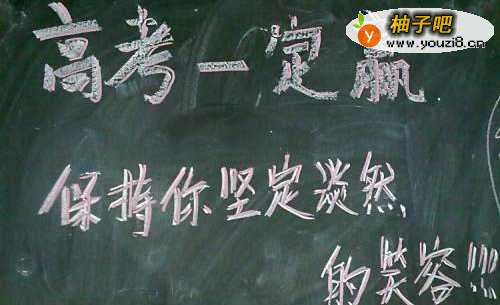 柚子吧
www.youzi8.cn
高考一定赢
保持你坚定淡然
的笑容!!!